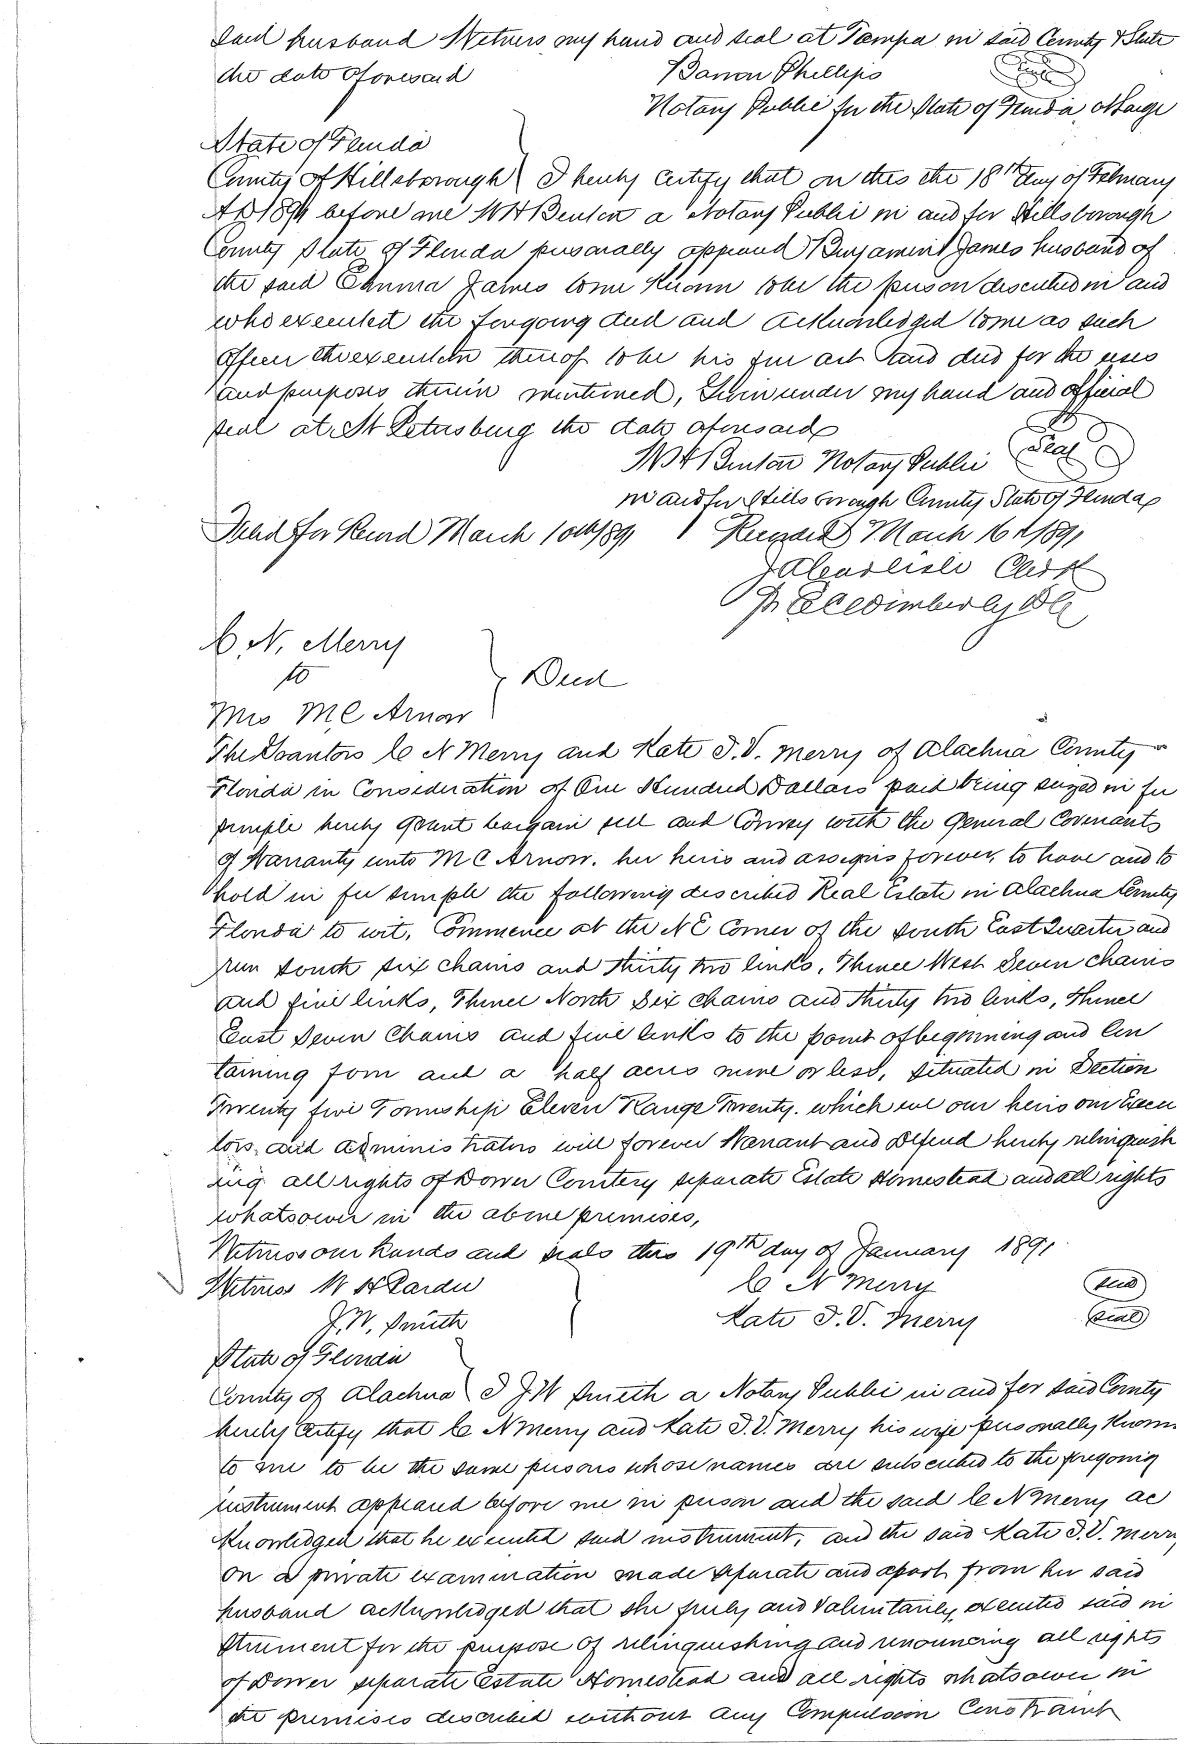 said husband Witness my hand and seal at Tampa in said County & State
the date aforesaid Barron Phillips
Notary Public for the State of Florida at Large
State of Florida
County of Hillsborough I hereby certify that on this the 18th day of February
AD 1891 before me W H Benton a Notary Public in and for Hillsborough
County State of Florida personally appeared Benjamin James husband of
the said Emma James to me known to be the person described in and
who executed the foregoing deed and acknowledged to me as such
officer the execution thereof to be his free act and deed for the uses
and purposes therein mentioned, Given under my hand and official
seal at St Petersburg the date aforesaid
W H Benton Notary Public Seal
in and for Hillsborough County State of Florida
Filed for Record March 10th 1891 Recorded March 16th 1891
J A Carlisle Clerk
Wimberly D C
C. N. Merry
to Deed
Mrs M C Arnow
The Grantors C N Merry and Kate I. V. Merry of Alachua County
Florida in Consideration of One Hundred Dollars paid being seized in fee
simple hereby grant bargain sell and Convey with the General Covenants
of Warranty unto M C Arnow. her heirs and assigns forever, to have and to
hold in fee simple the following described Real Estate in Alachua County
Florida to wit, Commence at the NE Corner of the South East Quarter and
run South six chains and thirty two links, Thence West Seven chains
and five links, Thence North Six chains and thirty two links, thence
East Seven Chains and five links to the point of beginning and Con
taining four and a half acres more or less, situated in Section
Twenty five Township Eleven Range Twenty. which we our heirs our Execu
tors, and administrators will forever Warrant and Defend hereby relinquish
ing all rights of Dower Courtesy separate Estate Homestead and all rights
whatsoever in the above premises,
Witness our hands and seals this 19th day of January 1891
Witness W H C N Merry seal
J. W. Smith Kate I. V. Merry seal
State of Florida
County of Alachua I J W Smith a Notary Public in and for said County
hereby Certify that C N Merry and Kate I. V. Merry his wife personally known
to me to be the same persons whose names are subscribed to the foregoing
instrument appeared before me in person and the said C N Merry ac
knowledged that he executed said instrument, and the said Kate I. V. Merry
on a private examination made separate and apart from her said
husband acknowledged that she freely and voluntarily executed said in
strument for the purpose of relinquishing and renouncing all rights
of Dower separate Estate Homestead and all rights whatsoever in
the premises described without any Compulsion Constraint